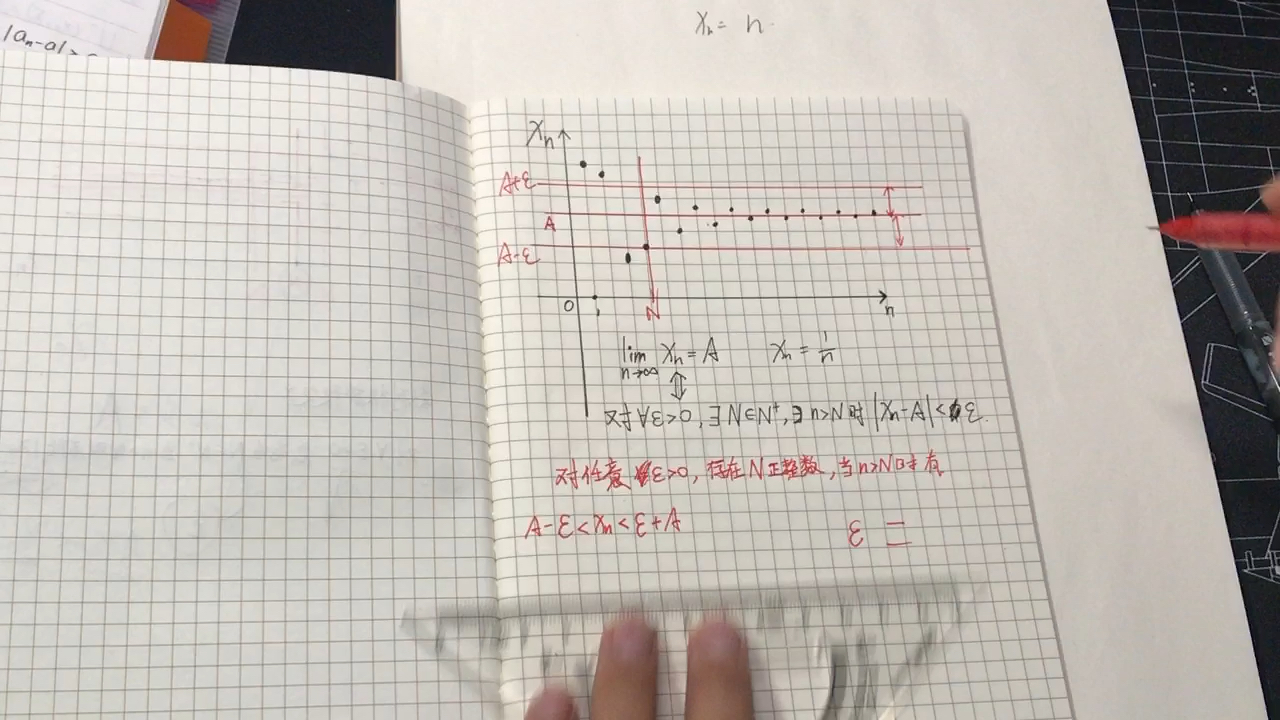 |aₙ-a|>
Xₙ= n
Xₙ
A+ε
A
A-ε
0
1
N
n
lim Xₙ = A Xₙ = 1/n
n→∞
⇕
对∀ε>0, ∃N∈N⁺, ∃ n>N时 |Xₙ-A|<ε.
对任意 ε>0, 存在N正整数, 当n>N时有
A-ε<Xₙ<ε+A ε =